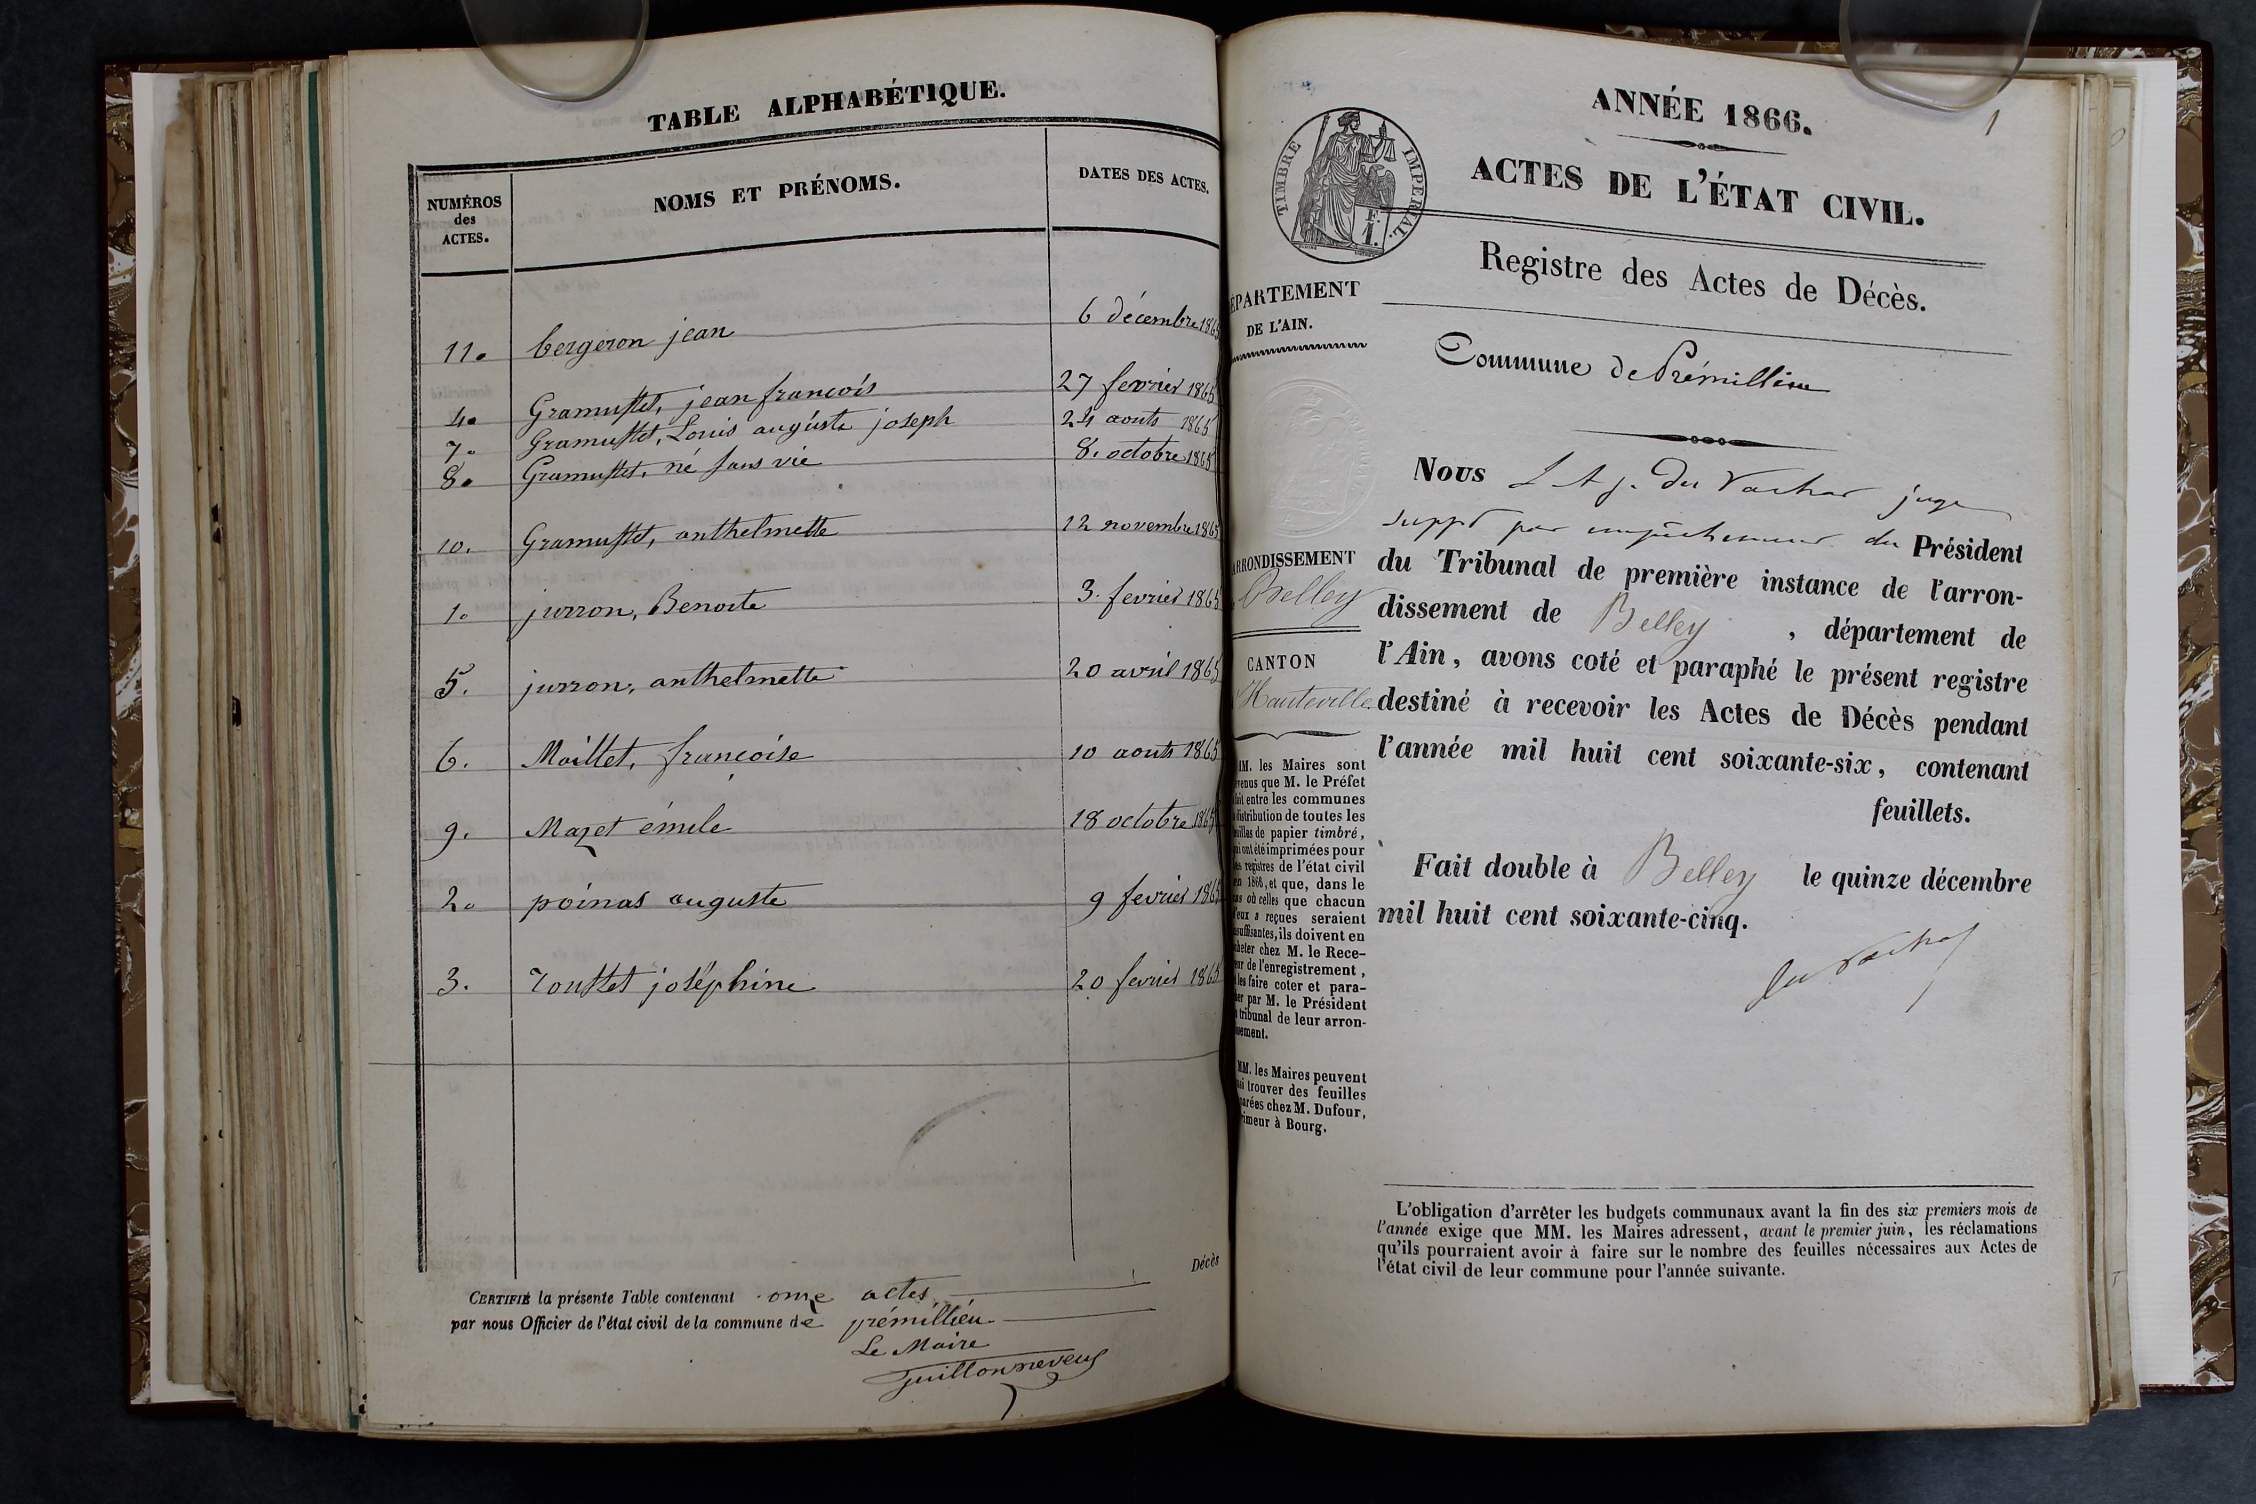 TABLE ALPHABÉTIQUE.
NUMÉROS
des
ACTES.
NOMS ET PRÉNOMS.
DATES DES ACTES.
11. bergeron jean 6 décembre 1865
4. Gramustet, jean francois 27 fevrier 1865
7. Gramustet, Louis auguste joseph 24 aouts 1865
8. Gramustet, né sans vie 8. octobre 1865
10. Gramustet, anthelmette 12 novembre 1865
1. jurron, Benoite 3. fevrier 1865
5. jurron, anthelmette 20 avril 1865
6. Moillet, francoise 10 aouts 1865
9. Mazet émile 18 octobre 1865
2. poinas auguste 9 fevrier 1865
3. Touttet joséphine 20 fevrier 1865
Décès
CERTIFIÉ la présente Table contenant onze actes
par nous Officier de l'état civil de la commune de prémillieu
Le Maire
Guillonneveuf
1
ANNÉE 1866.
ACTES DE L'ÉTAT CIVIL.
TIMBRE IMPÉRIAL.
F.
1.
Registre des Actes de Décès.
Commune de Prémillieu
ÉPARTEMENT
DE L'AIN.
ARRONDISSEMENT
Belley
CANTON
Hauteville
MM. les Maires sont
venus que M. le Préfet
fait entre les communes
distribution de toutes les
feuilles de papier timbré,
qui ont été imprimées pour
les registres de l'état civil
en 1866, et que, dans le
cas où celles que chacun
d'eux a reçues seraient
insuffisantes, ils doivent en
acheter chez M. le Rece-
eur de l'enregistrement,
les faire coter et para-
her par M. le Président
tribunal de leur arron-
sement.
MM. les Maires peuvent
ssi trouver des feuilles
parées chez M. Dufour,
rimeur à Bourg.
Nous L A J. Du Vachat juge
suppt par empêchement du Président
du Tribunal de première instance de l'arron-
dissement de Belley, département de
l'Ain, avons coté et paraphé le présent registre
destiné à recevoir les Actes de Décès pendant
l'année mil huit cent soixante-six, contenant
feuillets.
Fait double à Belley le quinze décembre
mil huit cent soixante-cinq.
Du Vachat
L'obligation d'arrêter les budgets communaux avant la fin des six premiers mois de
l'année exige que MM. les Maires adressent, avant le premier juin, les réclamations
qu'ils pourraient avoir à faire sur le nombre des feuilles nécessaires aux Actes de
l'état civil de leur commune pour l'année suivante.